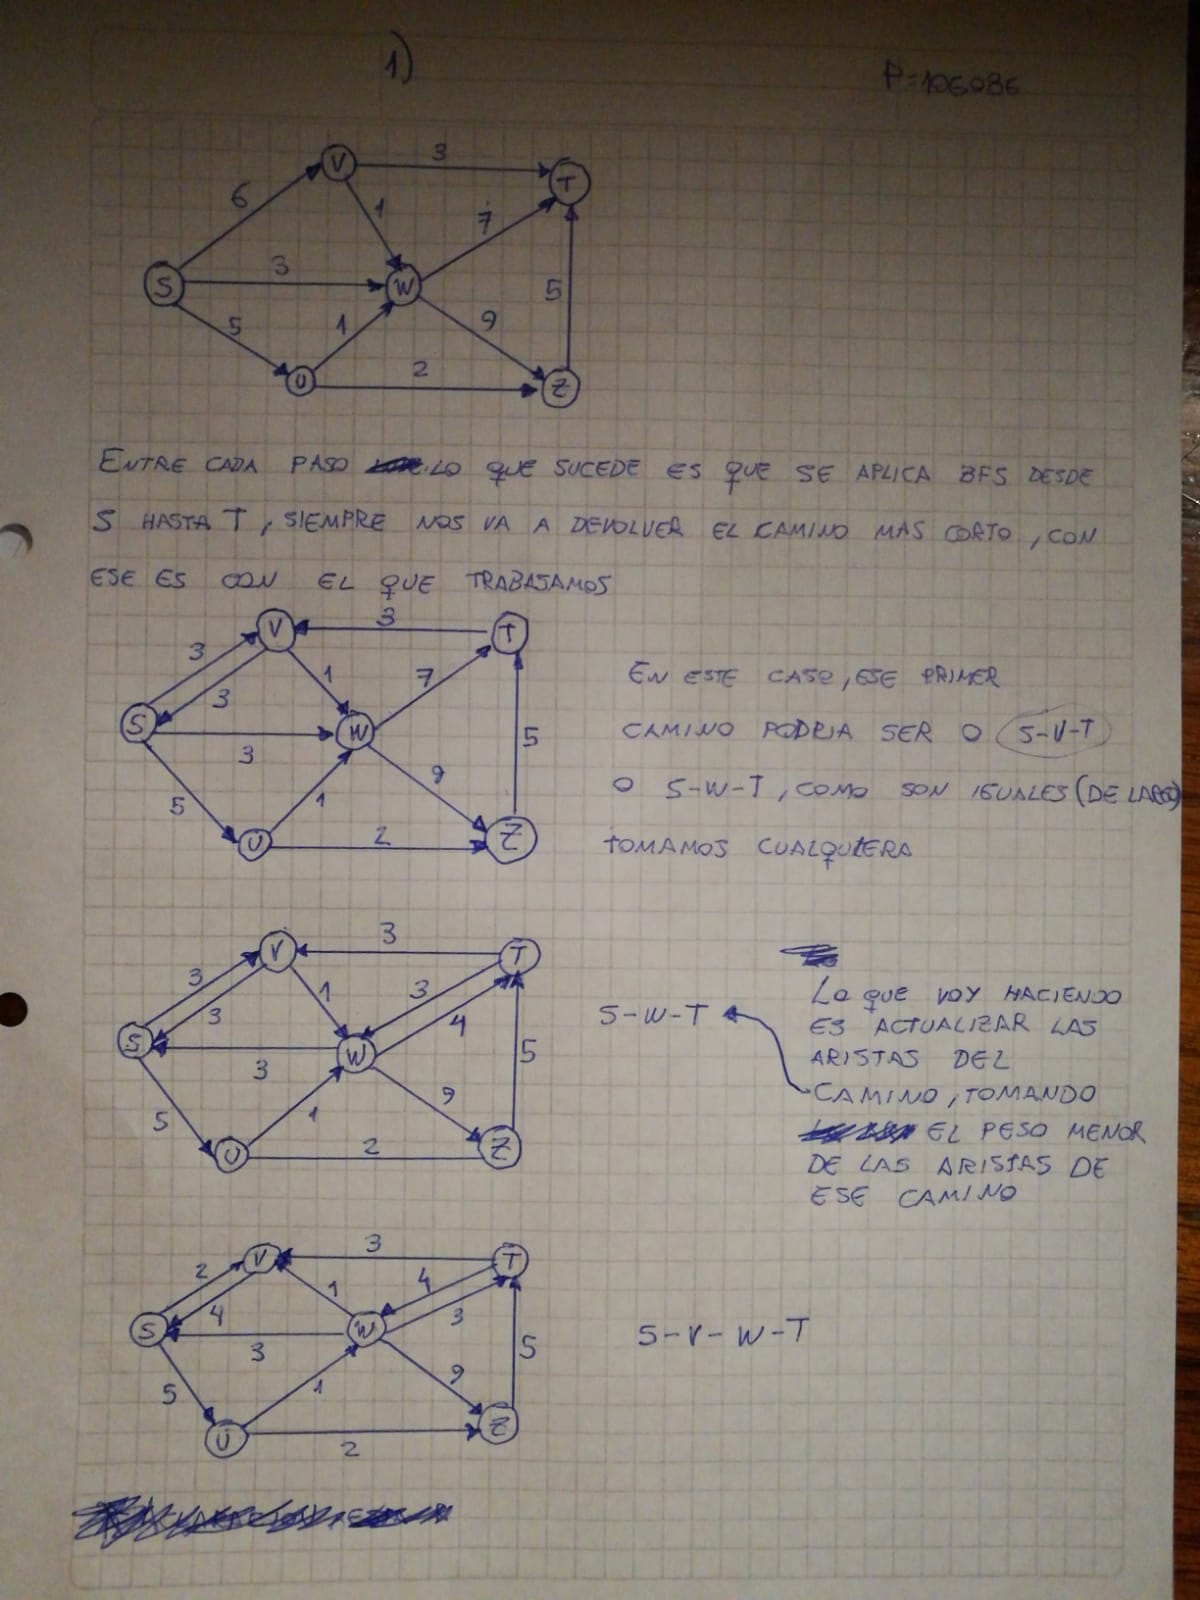 1)
P=106086
V 3 T
6 1 7
S 3 W 5
5 1 9
U 2 Z
ENTRE CADA PASO LO QUE SUCEDE ES QUE SE APLICA BFS DESDE
S HASTA T, SIEMPRE NOS VA A DEVOLVER EL CAMINO MAS CORTO, CON
ESE ES CON EL QUE TRABAJAMOS
V 3 T
3 3 1 7
S 3 W 5
5 1 9
U 2 Z
EN ESTE CASO, ESE PRIMER
CAMINO PODRIA SER O S-V-T
O S-W-T, COMO SON IGUALES (DE LARGO)
TOMAMOS CUALQUIERA
V 3 T
3 3 1 3 4
S 3 W 5
5 1 9
U 2 Z
S-W-T
LO QUE VOY HACIENDO
ES ACTUALIZAR LAS
ARISTAS DEL
CAMINO, TOMANDO
EL PESO MENOR
DE LAS ARISTAS DE
ESE CAMINO
V 3 T
2 4 1 4 3
S 3 W 5
5 1 9
U 2 Z
S-V-W-T